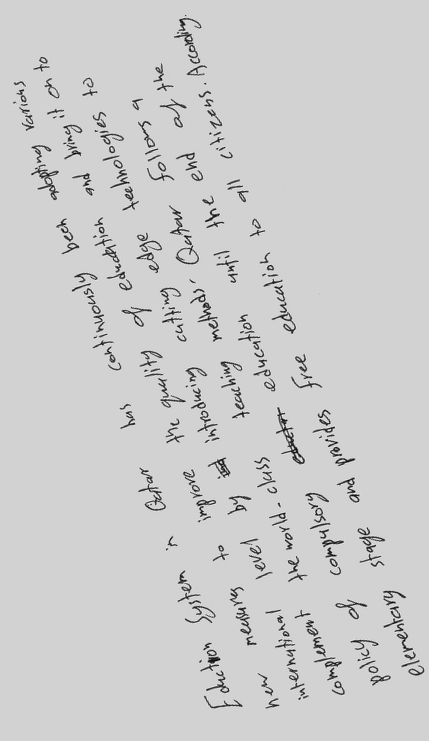 Eduction System in Qatar has continuously been adopting various
new measures to improve the quality of eduction and bring it on to
international level by introducing cutting edge technologies to
complement the world-class teaching methods. Qatar follows a
policy of compulsory education until the end of the
elementary stage and provides free education to all citizens. According